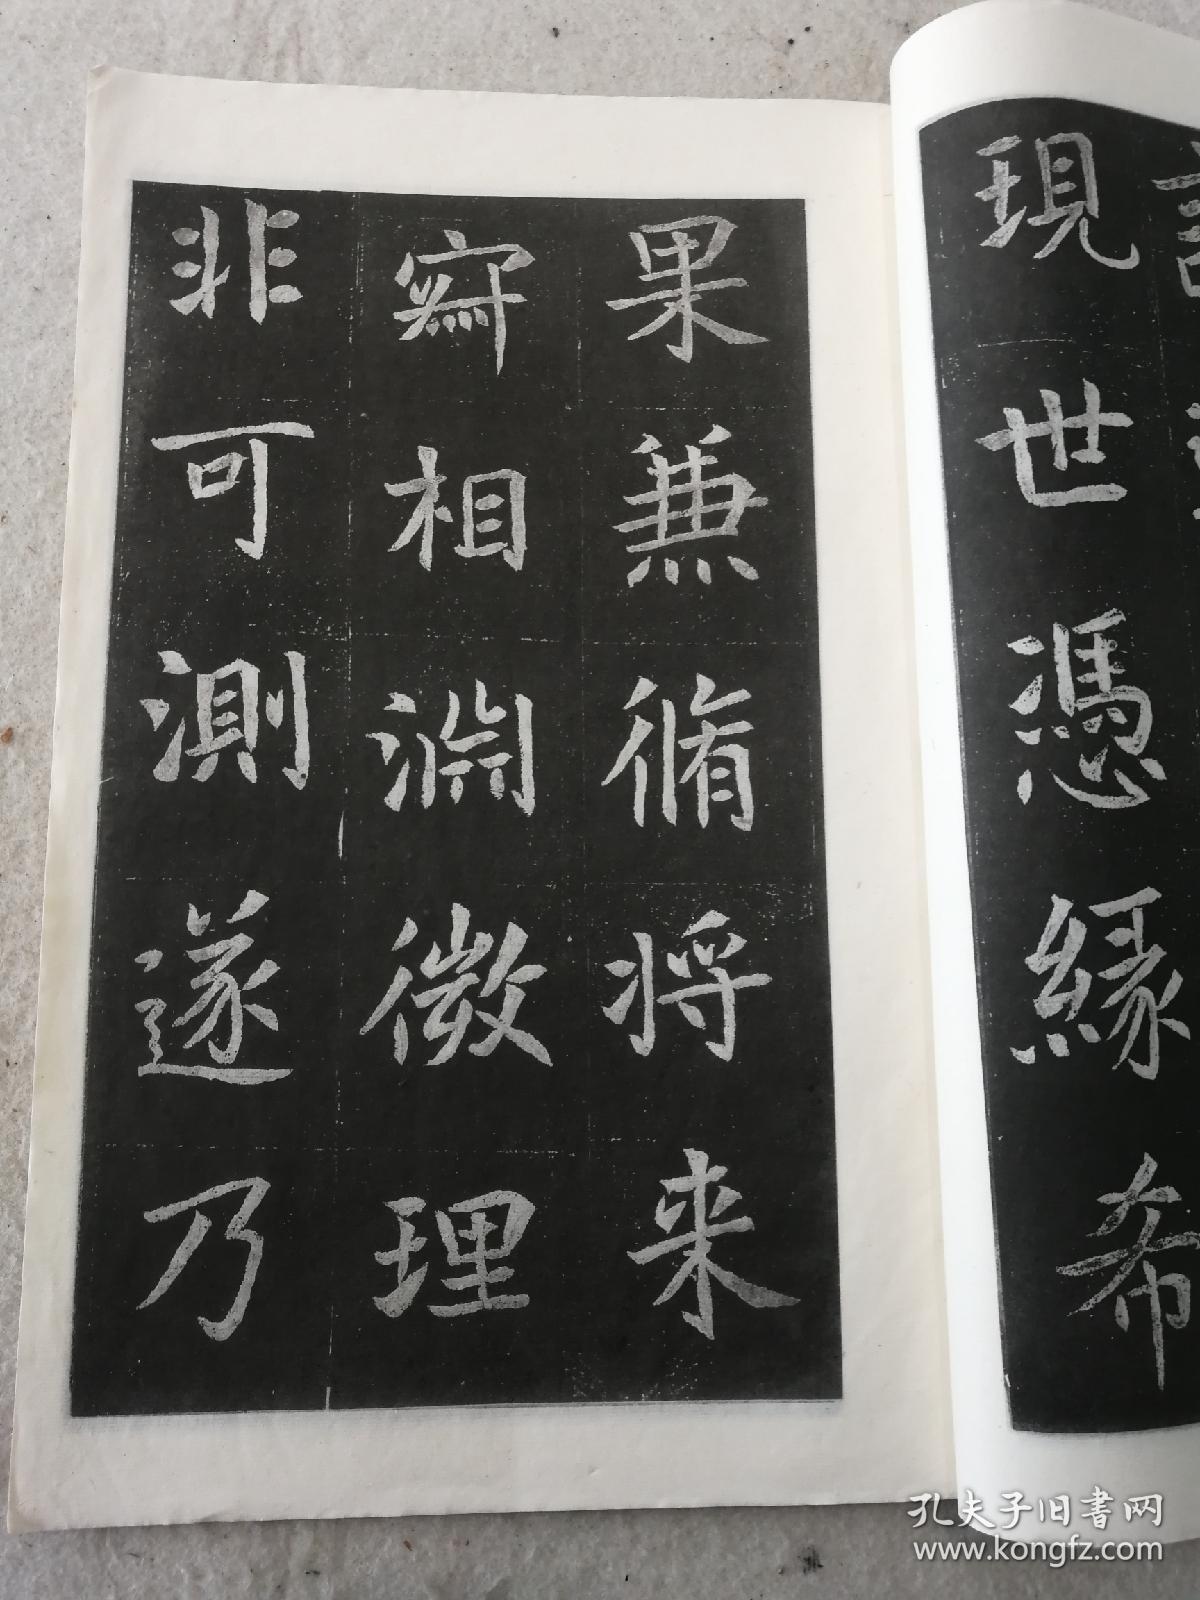 現世憑緣希
果兼脩将来
寂相淵微理
非可測遂乃
孔夫子旧書网
www.kongfz.com